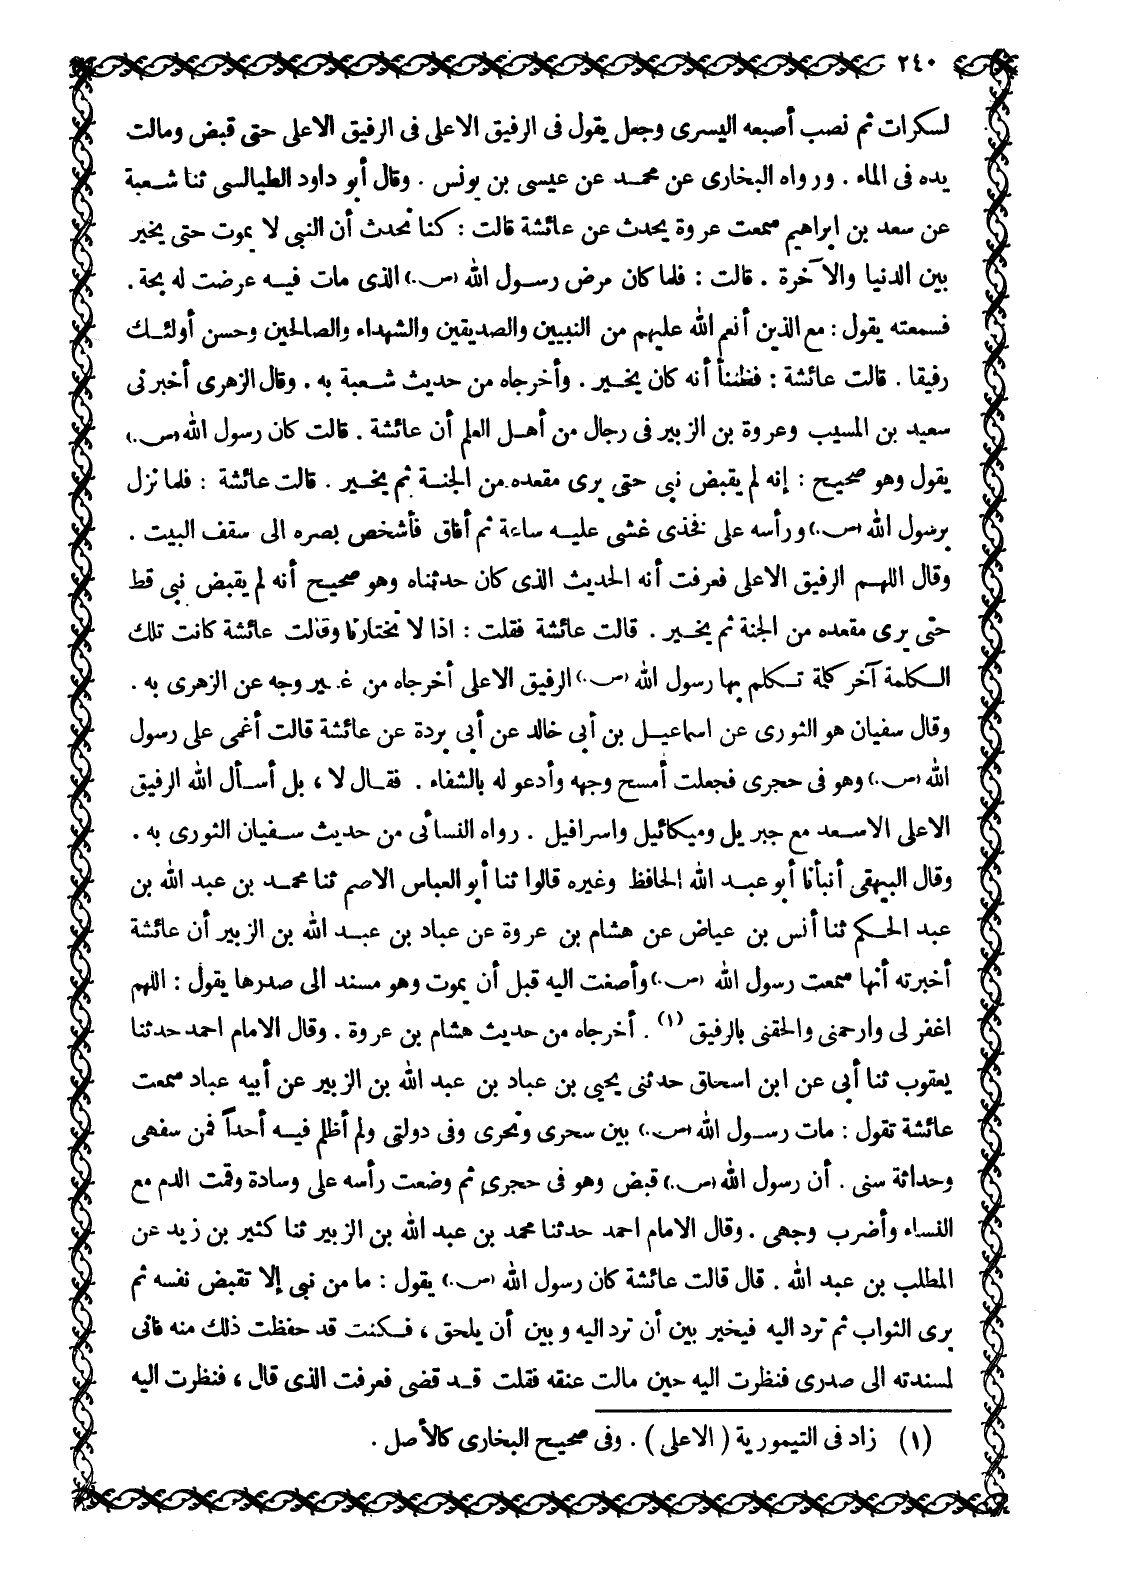 ٢٤٠
لسكرات ثم نصب أصبعه اليسرى وجعل يقول فى الرفيق الاعلى فى الرفيق الاعلى حتى قبض ومالت
يده فى الماء . ورواه البخارى عن محمد عن عيسى بن يونس . وقال أبو داود الطيالسى ثنا شعبة
عن سعد بن ابراهيم سمعت عروة يحدث عن عائشة قالت : كنا نحدث أن النبى لا يموت حتى يخير
بين الدنيا والآخرة . قالت : فلما كان مرض رسول الله (ص.) الذى مات فيه عرضت له بحة .
فسمعته يقول : مع الذين أنعم الله عليهم من النبيين والصديقين والشهداء والصالحين وحسن أولئك
رفيقا . قالت عائشة : فظننا أنه كان يخير . وأخرجاه من حديث شعبة به . وقال الزهرى أخبرنى
سعيد بن المسيب وعروة بن الزبير فى رجال من أهل العلم أن عائشة . قالت كان رسول الله (ص.)
يقول وهو صحيح : إنه لم يقبض نبى حتى يرى مقعده من الجنة ثم يخير . قالت عائشة : فلما نزل
برسول الله (ص.) ورأسه على فخذى غشى عليه ساعة ثم أفاق فأشخص بصره الى سقف البيت .
وقال اللهم الرفيق الاعلى فعرفت أنه الحديث الذى كان حدثناه وهو صحيح أنه لم يقبض نبى قط
حتى يرى مقعده من الجنة ثم يخير . قالت عائشة فقلت : اذا لا تختارنا وقالت عائشة كانت تلك
الكلمة آخر كلمة تكلم بها رسول الله (ص.) الرفيق الاعلى أخرجاه من غير وجه عن الزهرى به .
وقال سفيان هو الثورى عن اسماعيل بن أبى خالد عن أبى بردة عن عائشة قالت أغمى على رسول
الله (ص.) وهو فى حجرى فجعلت أمسح وجهه وأدعو له بالشفاء . فقال لا ، بل أسأل الله الرفيق
الاعلى الاسعد مع جبريل وميكائيل واسرافيل . رواه النسائى من حديث سفيان الثورى به .
وقال البيهقى أنبأنا أبو عبد الله الحافظ وغيره قالوا ثنا أبو العباس الاصم ثنا محمد بن عبد الله بن
عبد الحكم ثنا أنس بن عياض عن هشام بن عروة عن عباد بن عبد الله بن الزبير أن عائشة
أخبرته أنها سمعت رسول الله (ص.) وأصغت اليه قبل أن يموت وهو مسند الى صدرها يقول : اللهم
اغفر لى وارحمنى والحقنى بالرفيق (١) . أخرجاه من حديث هشام بن عروة . وقال الامام احمد حدثنا
يعقوب ثنا أبى عن ابن اسحاق حدثنى يحيى بن عباد بن عبد الله بن الزبير عن أبيه عباد سمعت
عائشة تقول : مات رسول الله (ص.) بين سحرى ونحرى وفى دولتى ولم أظلم فيه أحداً فمن سفهى
وحداثة سنى . أن رسول الله (ص.) قبض وهو فى حجرى ثم وضعت رأسه على وسادة وقمت الدم مع
النساء وأضرب وجهى . وقال الامام احمد حدثنا محمد بن عبد الله بن الزبير ثنا كثير بن زيد عن
المطلب بن عبد الله . قال قالت عائشة كان رسول الله (ص.) يقول : ما من نبى إلا تقبض نفسه ثم
يرى الثواب ثم ترد اليه فيخير بين أن ترد اليه وبين أن يلحق ، فكنت قد حفظت ذلك منه فانى
لمسندته الى صدرى فنظرت اليه حين مالت عنقه فقلت قد قضى فعرفت الذى قال ، فنظرت اليه
(١) زاد فى التيمورية ( الاعلى ) . وفى صحيح البخارى كالأصل .